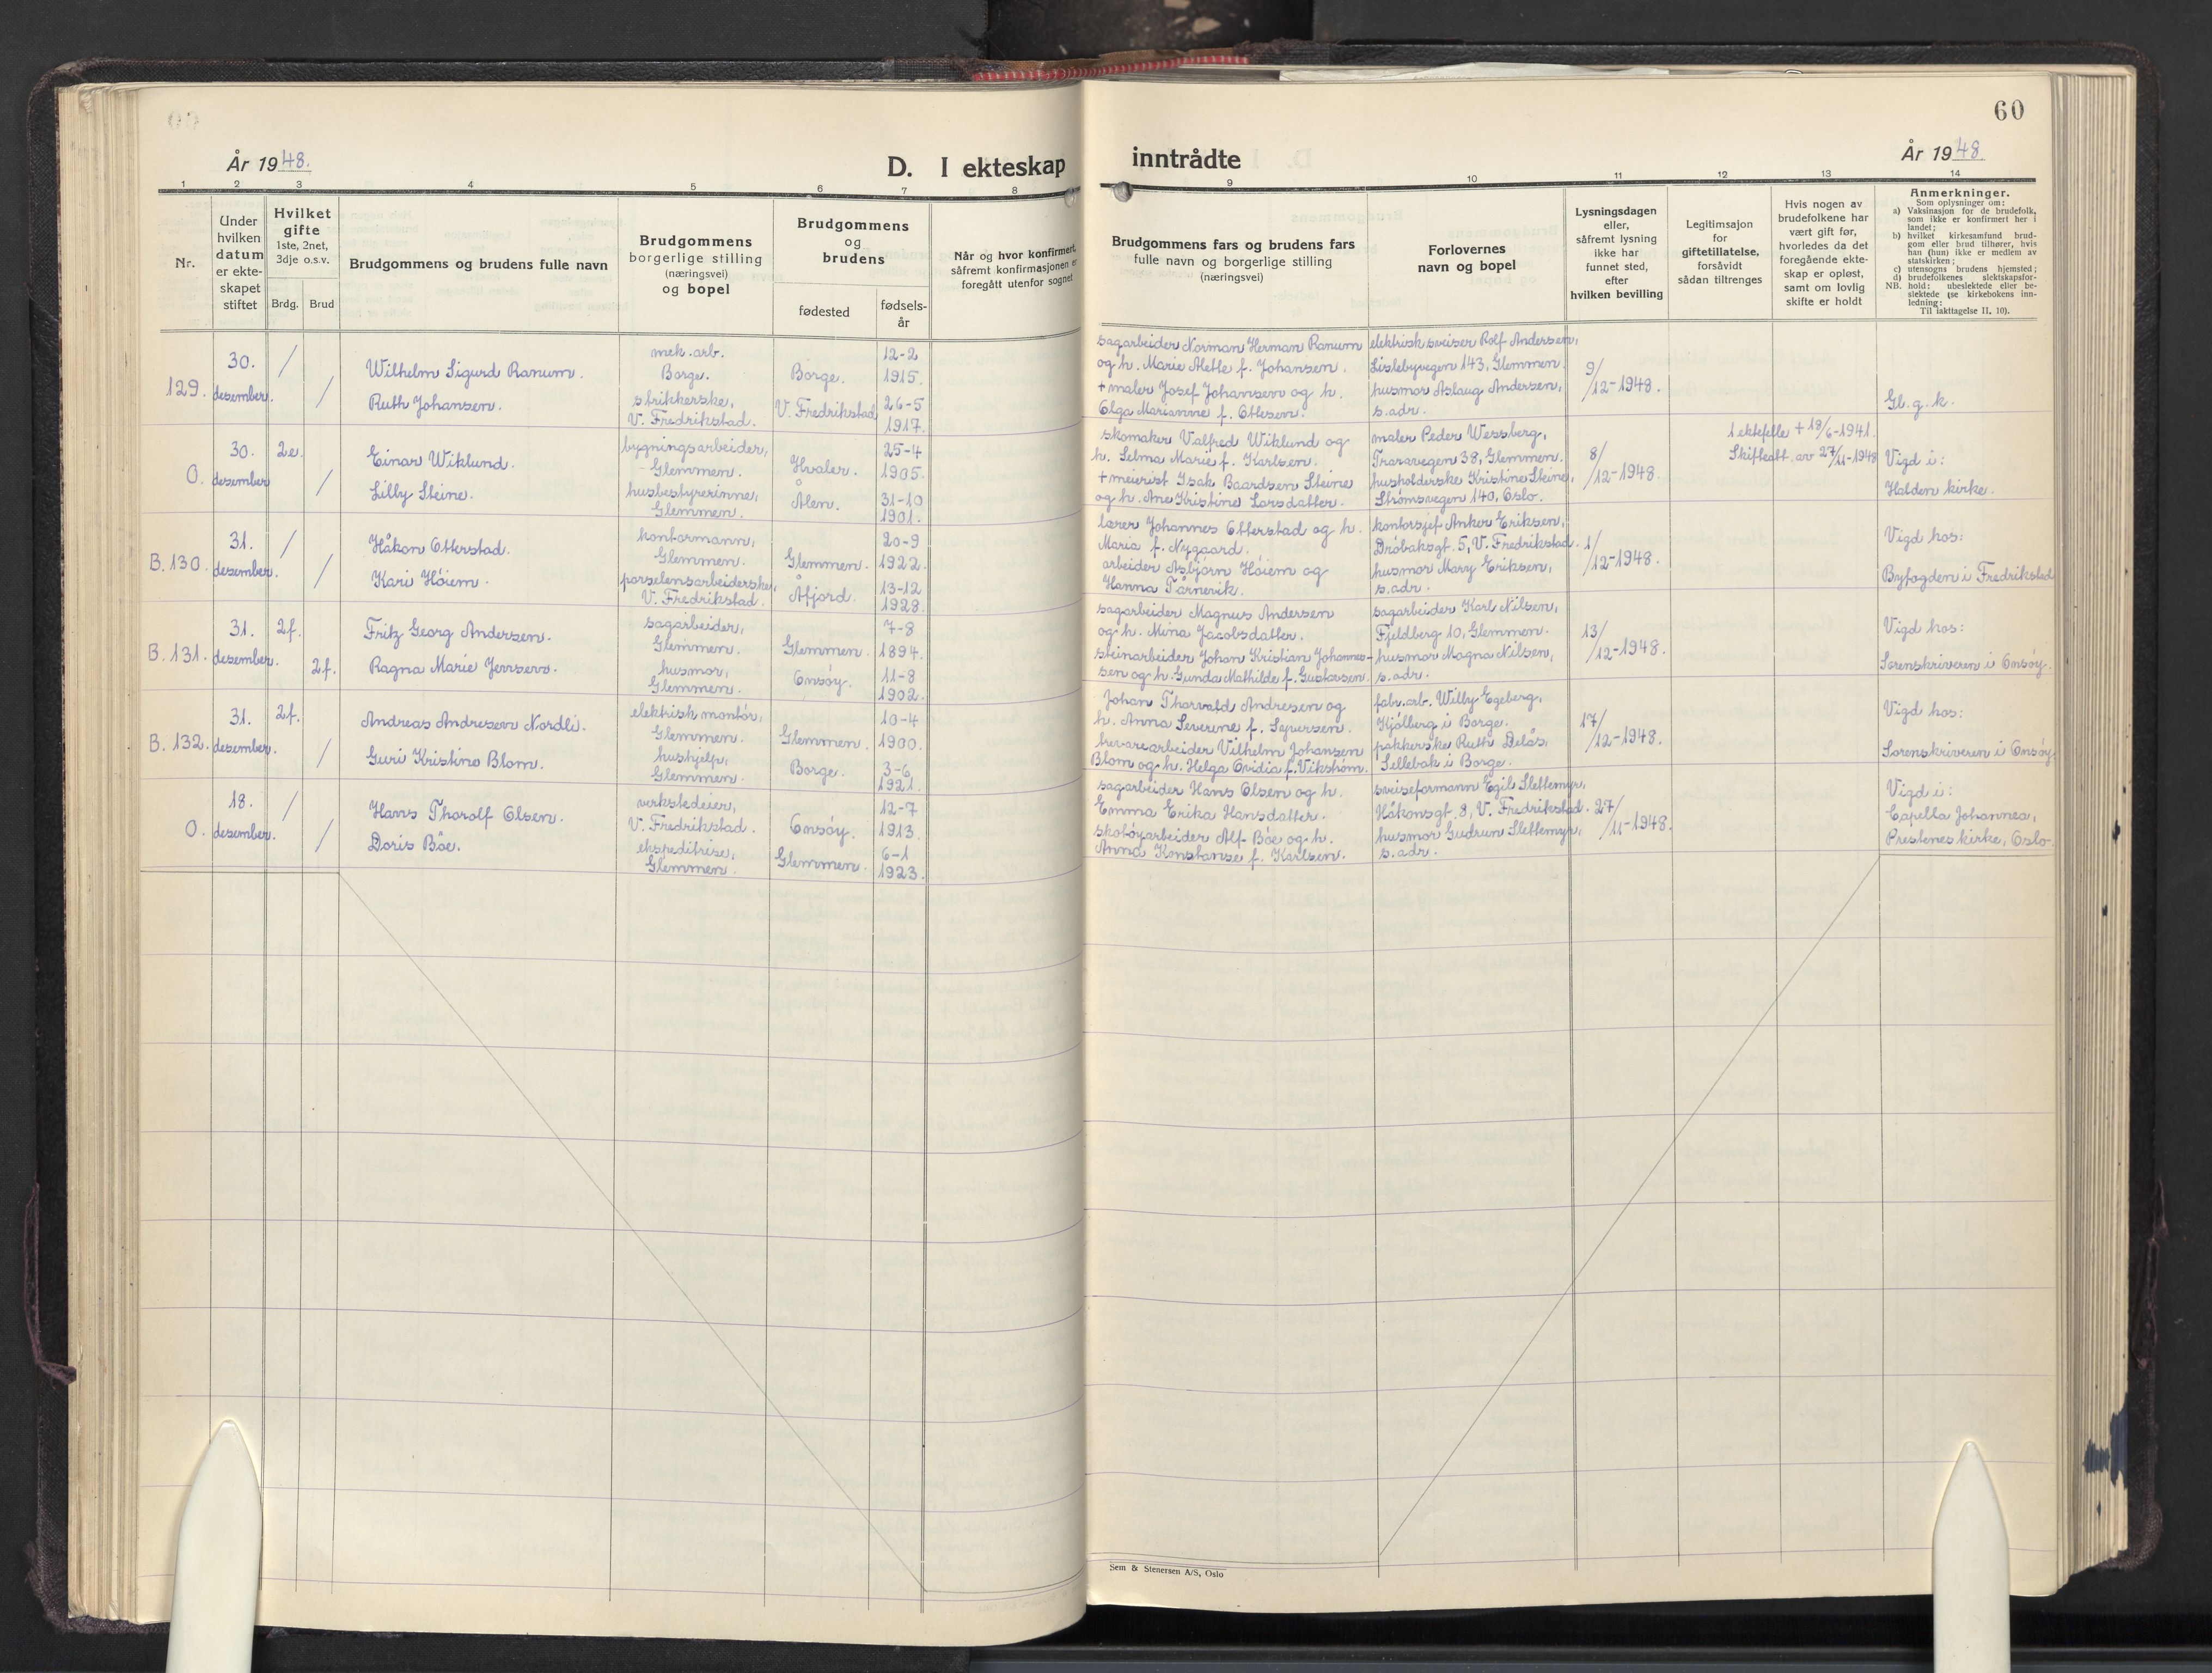 60
År 1948.
D. I ekteskap inntrådte
År 1948.
1 2 3 4 5 6 7 8 9 10 11 12 13 14
Nr.
Under
hvilken
datum
er ekte-
skapet
stiftet
Hvilket
gifte
1ste, 2net,
3dje o.s.v.
Brdg. Brud
Brudgommens og brudens fulle navn
Brudgommens
borgerlige stilling
(næringsvei)
og bopel
Brudgommens
og
brudens
fødested
fødsels-
år
Når og hvor konfirmert,
såfremt konfirmasjonen er
foregått utenfor sognet
Brudgommens fars og brudens fars
fulle navn og borgerlige stilling
(næringsvei)
Forlovernes
navn og bopel
Lysningsdagen
eller,
såfremt lysning
ikke har
funnet sted,
efter
hvilken bevilling
Legitimsajon
for
giftetillatelse,
forsåvidt
sådan tiltrenges
Hvis nogen av
brudefolkene har
vært gift før,
hvorledes da det
foregående ekte-
skap er opløst,
samt om lovlig
skifte er holdt
Anmerkninger.
Som oplysninger om:
a) Vaksinasjon for de brudefolk,
som ikke er konfirmert her i
landet;
b) hvilket kirkesamfund brud-
gom eller brud tilhører, hvis
han (hun) ikke er medlem av
statskirken;
c) utensogns brudens hjemsted;
d) brudefolkenes slektskapsfor-
NB. hold: ubeslektede eller be-
slektede (se kirkebokens inn-
ledning:
Til iakttagelse II, 10).
129.
30.
desember.
/
/
Wilhelm Sigurd Ranum.
Ruth Johansen.
mek. arb.
Borge.
strikkerske,
V. Fredrikstad.
Borge.
V. Fredrikstad
12-2
1915.
26-5
1917.
sagarbeider Norman Herman Ranum
og h. Marie Alette f. Johansen.
+ maler Josef Johansen og h.
Olga Marianne f. Ottesen.
elektrisk sveiser Rolf Andersen,
Lislebyvegen 143, Glemmen.
husmor Aslaug Andersen,
s. adr.
9/12-1948.
Gb. g. k.
O.
30.
desember
2e.
/
Einar Wiklund.
Lilly Steine.
bygningsarbeider,
Glemmen.
husbestyrerinne,
Glemmen.
Hvaler.
Ålen.
25-4
1905.
31-10
1901.
skomaker Valfred Wiklund og
h. Selma Marie f. Karlsen.
+ meierist Isak Baardsen Steine
og h. Ane Kristine Larsdatter.
maler Peder Wessberg,
Traravegen 38, Glemmen.
husholderske Kristine Steine,
Strømsvegen 140, Oslo.
8/12-1948.
1 ektefelle + 18/6-1941.
Skifteatt. av 27/11-1948
Vigd i:
Halden kirke.
B. 130.
31.
desember.
/
/
Håkon Otterstad.
Kari Höiem.
kontormann,
Glemmen.
porselensarbeiderske,
V. Fredrikstad.
Glemmen.
Åfjord.
20-9
1922.
13-12
1928.
lærer Johannes Otterstad og h.
Maria f. Nygaard.
arbeider Asbjørn Höiem og
Hanna Tårnevik.
kontorsjef Anker Eriksen,
Dröbaksgt. 5, V. Fredrikstad.
husmor Mary Eriksen,
s. adr.
1/12-1948.
Vigd hos:
Byfogden i Fredrikstad
B. 131.
31.
desember.
2f.
2f.
Fritz Georg Andersen.
Ragna Marie Jensen.
sagarbeider,
Glemmen.
husmor,
Glemmen.
Glemmen.
Onsöy.
7-8
1894.
11-8
1902.
sagarbeider Magnus Andersen
og h. Mina Jacobsdatter.
steinarbeider Johan Kristian Johannes-
sen og h. Gunda Mathilde f. Gustavsen.
sagarbeider Karl Nilsen,
Fjeldberg 10, Glemmen.
husmor Magna Nilsen,
s. adr.
13/12-1948.
Vigd hos:
Sorenskriveren i Onsöy.
B. 132.
31.
desember.
2f.
/
Andreas Andresen Nordli.
Guri Kristine Blom.
elektrisk montör,
Glemmen.
hushjelp,
Glemmen.
Glemmen.
Borge.
10-4
1900.
3-6
1921.
Johan Thorvald Andresen og
h. Anna Severine f. Syversen.
hervarearbeider Vilhelm Johansen
Blom og h. Helga Ovidia f. Vikström.
fabr. arb. Willy Egeberg,
Kjölberg i Borge.
pakkerske Ruth Delås,
Sellebak i Borge.
17/12-1948.
Vigd hos:
Sorenskriveren i Onsöy
O.
18.
desember.
/
/
Hans Thorolf Olsen.
Doris Böe.
verkstedeier,
V. Fredrikstad.
ekspeditrise,
Glemmen.
Onsöy.
Glemmen.
12-7
1913.
6-1
1923.
sagarbeider Hans Olsen og h.
Emma Erika Hansdatter.
skotöyarbeider Alf Böe og h.
Anna Konstanse f. Karlsen.
sveiseformann Egil Slettemyr,
Håkonsgt. 8, V. Fredrikstad.
husmor Gudrun Slettemyr,
s. adr.
27/11-1948.
Vigd i:
Capella Johannea,
Prestenes kirke, Oslo.
Sem & Stenersen A/S, Oslo